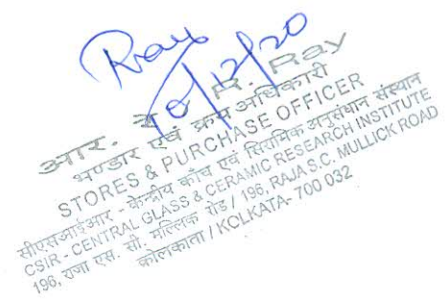 Ray
10/12/20
आर. R. Ray
भण्डार एवं क्रय अधिकारी
STORES & PURCHASE OFFICER
सीएसआईआर - केन्द्रीय काँच एवं सिरामिक अनुसंधान संस्थान
CSIR - CENTRAL GLASS & CERAMIC RESEARCH INSTITUTE
196, राजा एस. सी. मल्लिक रोड / 196, RAJA S.C. MULLICK ROAD
कोलकाता / KOLKATA- 700 032